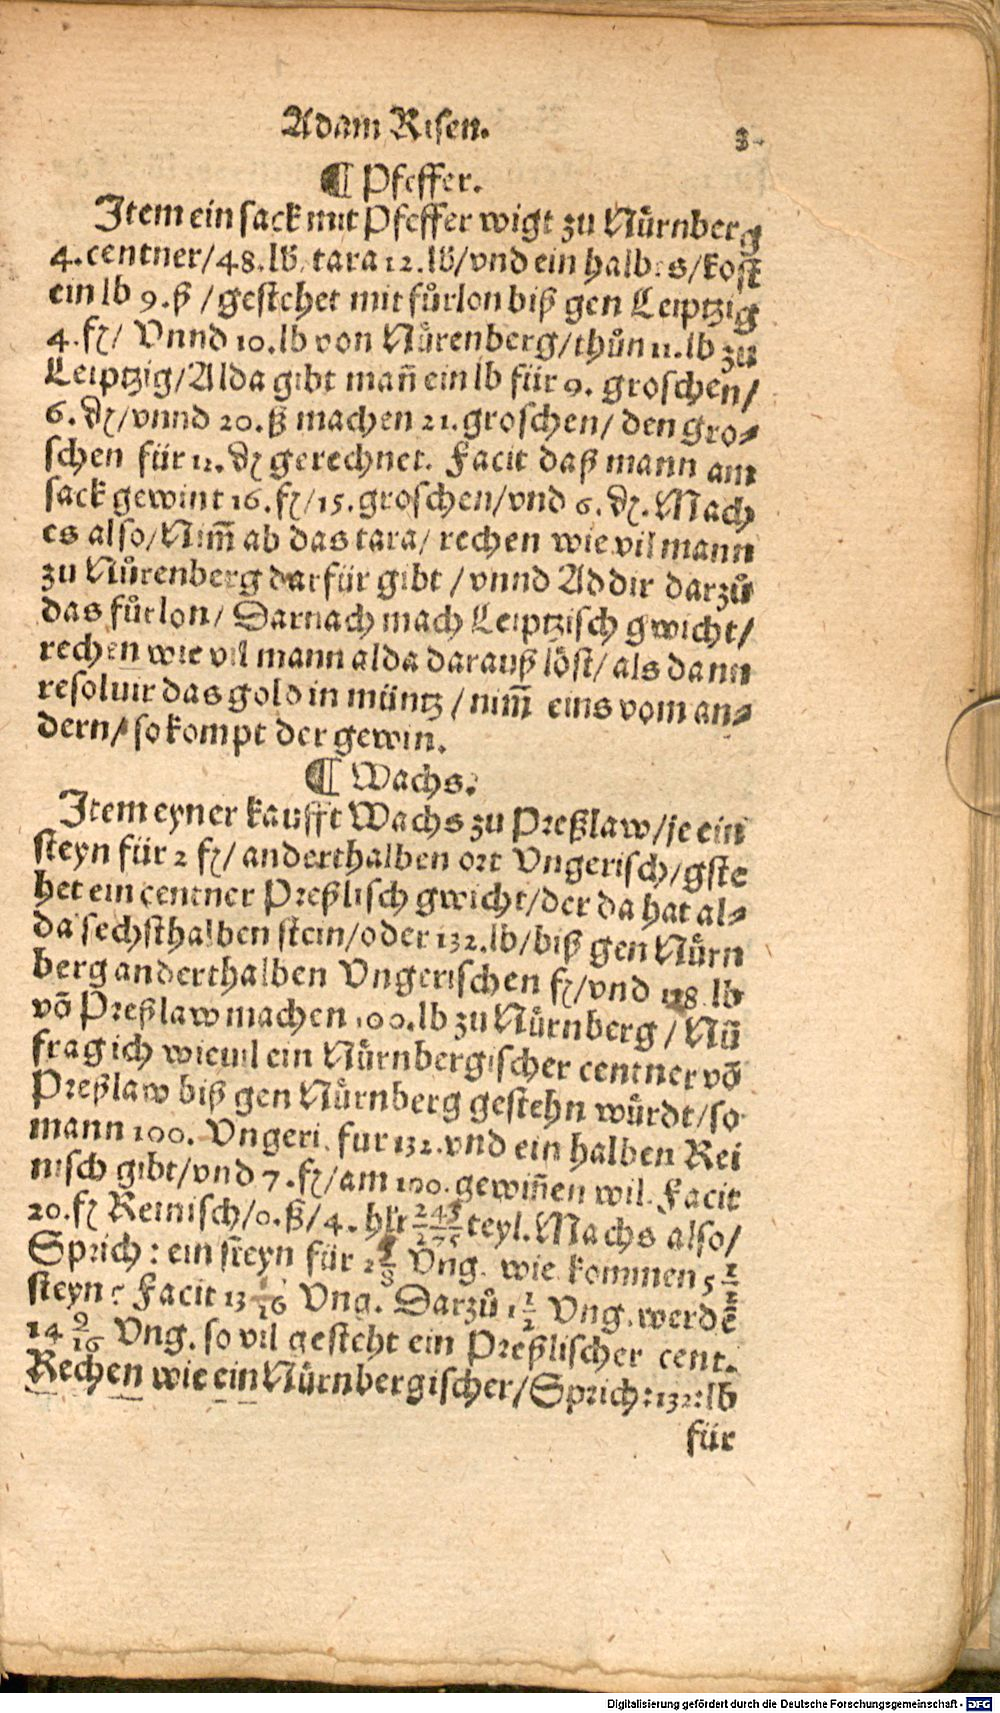 Adam Risen.
3
¶ Pfeffer.
Item ein sack mit Pfeffer wigt zu Nürnberg
4. centner/48. lb, tara 12. lb/vnd ein halbes/kost
ein lb 9. ß /gestehet mit fůrlon biß gen Leiptzig
4. fl/ Vnnd 10. lb von Nürenberg/thůn 11. lb zu
Leiptzig/Alda gibt mañ ein lb für 9. groschen/
6. ₰/vnnd 20. ß machen 21. groschen/ den gro⸗
schen für 12. ₰ gerechnet. Facit daß mann am
sack gewint 16. fl/15. groschen/vnd 6. ₰. Mach
es also/Nim̃ ab das tara/ rechen wie vil mann
zu Nürenberg darfür gibt /vnnd Addir darzů
das fůrlon/ Darnach mach Leiptzisch gwicht/
rechen wie vil mann alda darauß löst/ als dann
resoluir das gold in müntz /nim̃ eins vom an⸗
dern/ so kompt der gewin.
¶ Wachs.
Item eyner kaufft Wachs zu Preßlaw/je ein
steyn für 2 fl/ anderthalben ort Vngerisch/gste
het ein centner Preßlisch gwicht/der da hat al⸗
da sechsthalben stein/oder 132. lb/biß gen Nürn
berg anderthalben Vngerischen fl/vnd 128 lb
võ Preßlaw machen 100. lb zu Nürnberg / Nũ
frag ich wieuil ein Nürnbergischer centner võ
Preßlaw biß gen Nürnberg gestehn würdt/so
mann 100. Vngeri. fur 132. vnd ein halben Rei
nisch gibt/vnd 7. fl/am 100. gewiñen wil. Facit
20. fl Reinisch/0. ß/4. hlr 243/275 teyl. Machs also/
Sprich: ein steyn für 2 3/8 Vng. wie kommen 5 1/2
steyn? Facit 13 1/16 Vng. Darzů 1 1/2 Vng. werdẽ
14 9/16 Vng. so vil gesteht ein Preßlischer cent.
Rechen wie ein Nürnbergischer/Sprich: 132: lb
für
Digitalisierung gefördert durch die Deutsche Forschungsgemeinschaft - DFG